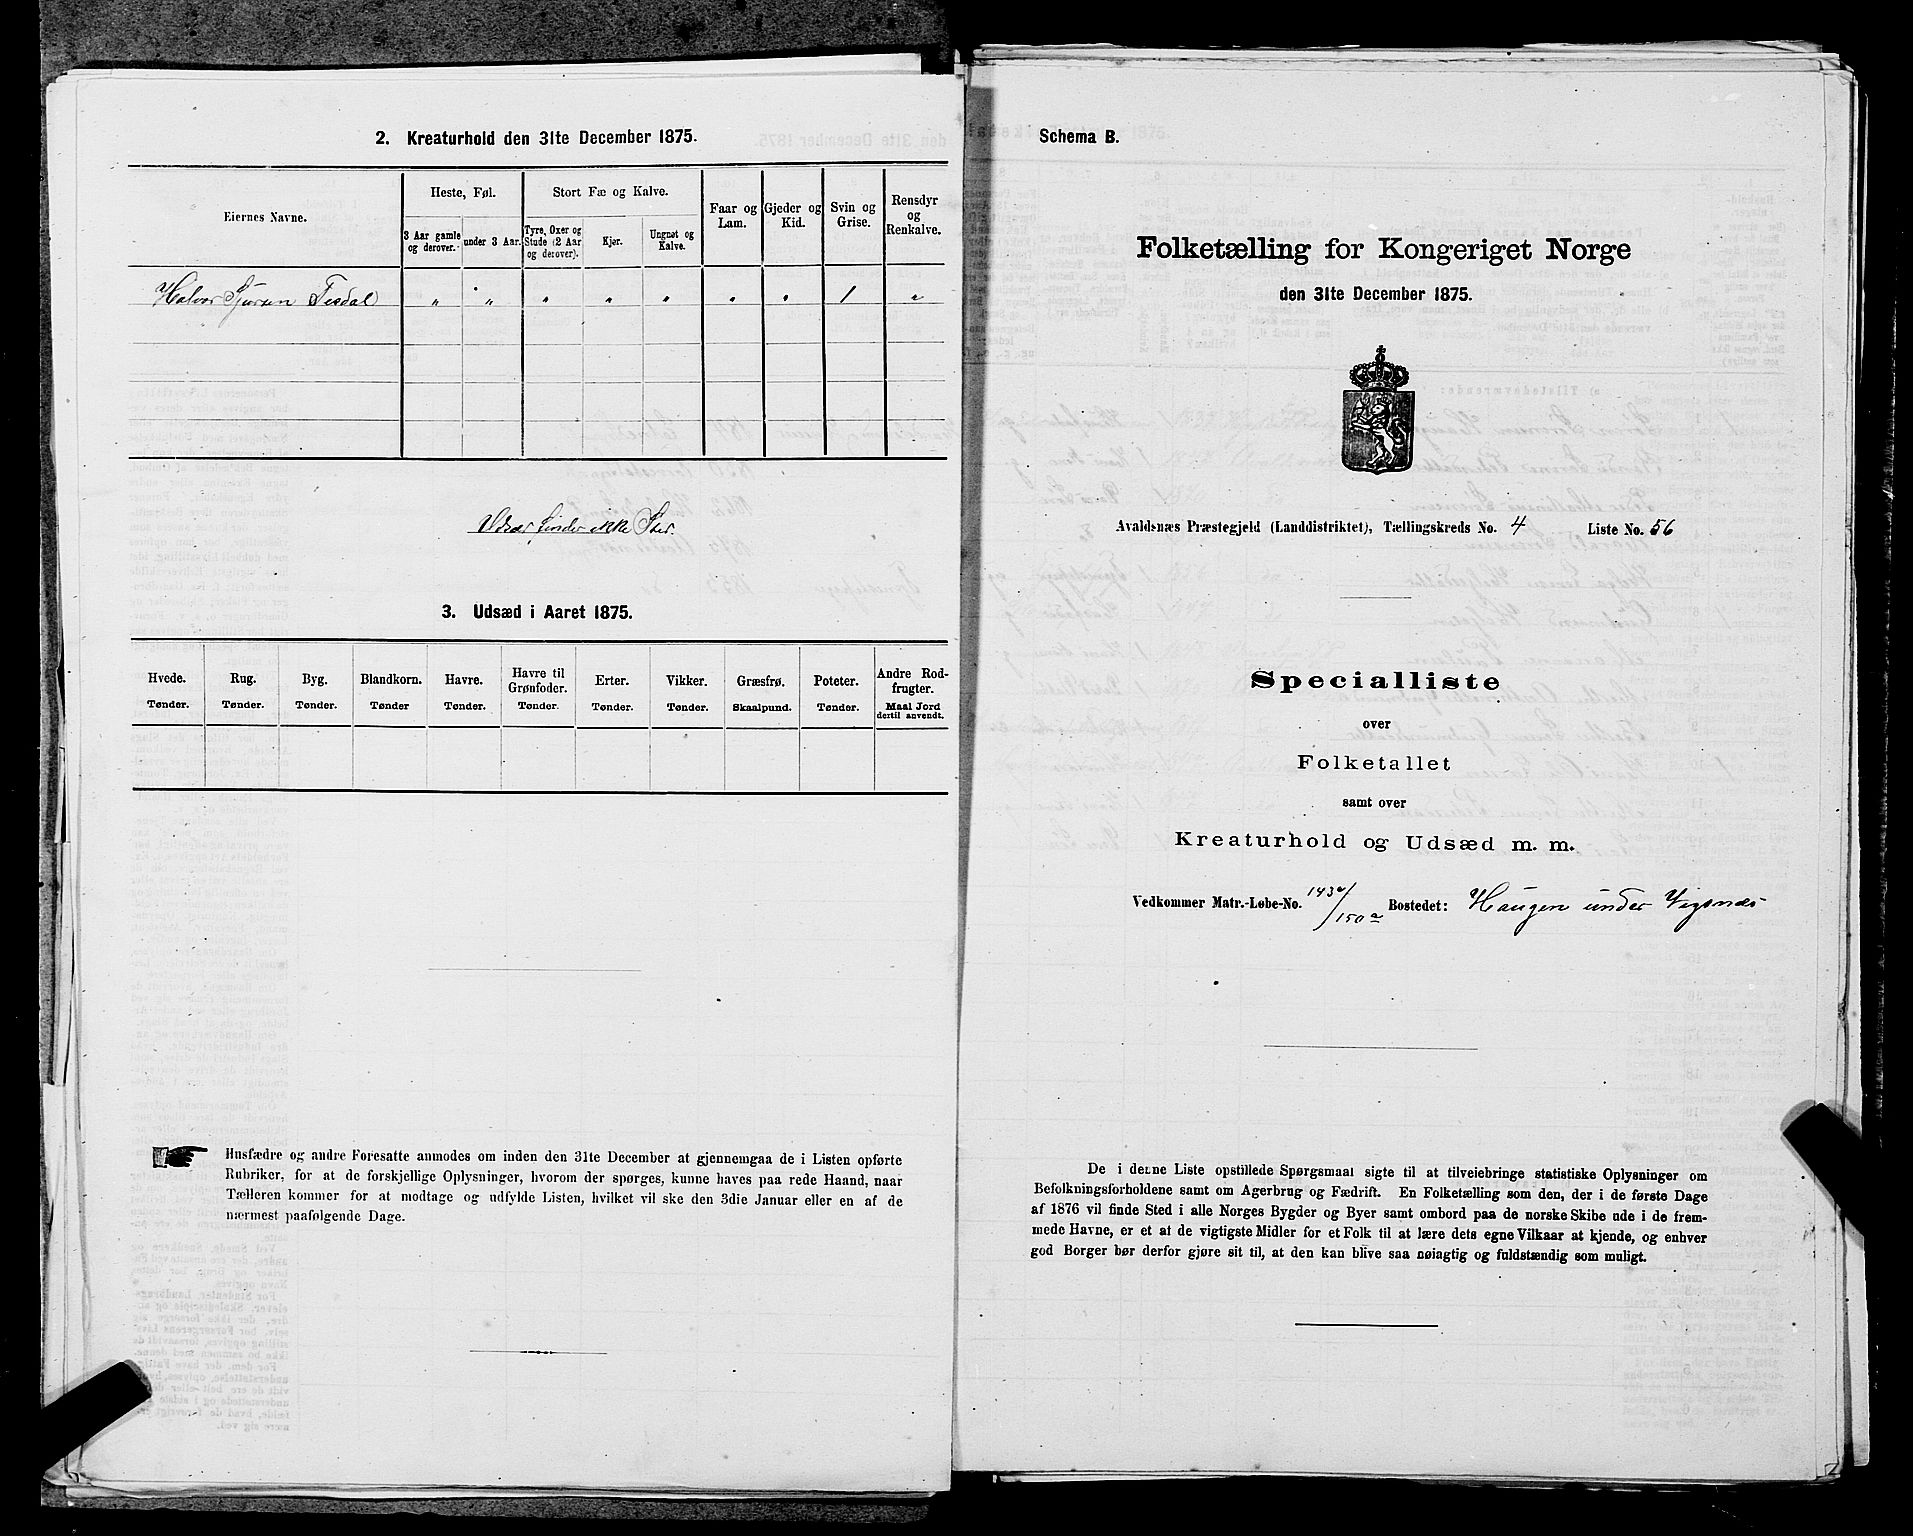 2. Kreaturhold den 31te December 1875.
Eiernes Navne.
Heste, Føl.
3 Aar gamle og derover.
under 3 Aar.
Stort Fæ og Kalve.
Tyre, Oxer og Stude (2 Aar og derover).
Kjør.
Ungnøt og Kalve.
Faar og Lam.
Gjeder og Kid.
Svin og Grise.
Rensdyr og Renkalve.
Halvor Tisdal " " " " " " " 1 "
Udsæd finder ikke Sted.
3. Udsæd i Aaret 1875.
Hvede. Tønder.
Rug. Tønder.
Byg. Tønder.
Blandkorn. Tønder
Havre. Tønder.
Havre til Grønfoder. Tønder.
Erter. Tønder.
Vikker. Tønder.
Græsfrø. Skaalpund.
Poteter. Tønder.
Andre Rodfrugter. Maal Jord dertil anvendt.
Husfædre og andre Foresatte anmodes om inden den 31te December at gjennemgaa de i Listen opførte
Rubriker, for at de forskjellige Oplysninger, hvorom der spørges, kunne haves paa rede Haand, naar
Tælleren kommer for at modtage og udfylde Listen, hvilket vil ske den 3die Januar eller en af de
nærmest paafølgende Dage.
Schema B.
Folketælling for Kongeriget Norge
den 31te December 1875.
Avaldsnæs Præstegjeld (Landdistriktet), Tællingskreds No. 4 Liste No. 56
Specialliste
over
Folketallet
samt over
Kreaturhold og Udsæd m. m.
Vedkommer Matr.-Løbe-No. 143a/150a Bostedet: Haugen under Vigsnæs
De i denne Liste opstillede Spørgsmaal sigte til at tilveiebringe statistiske Oplysninger om
Befolkningsforholdene samt om Agerbrug og Fædrift. En Folketælling som den, der i de første Dage
af 1876 vil finde Sted i alle Norges Bygder og Byer samt ombord paa de norske Skibe ude i de frem-
mede Havne, er et af de vigtigste Midler for et Folk til at lære dets egne Vilkaar at kjende, og enhver
god Borger bør derfor gjøre sit til, at den kan blive saa nøiagtig og fuldstændig som muligt.